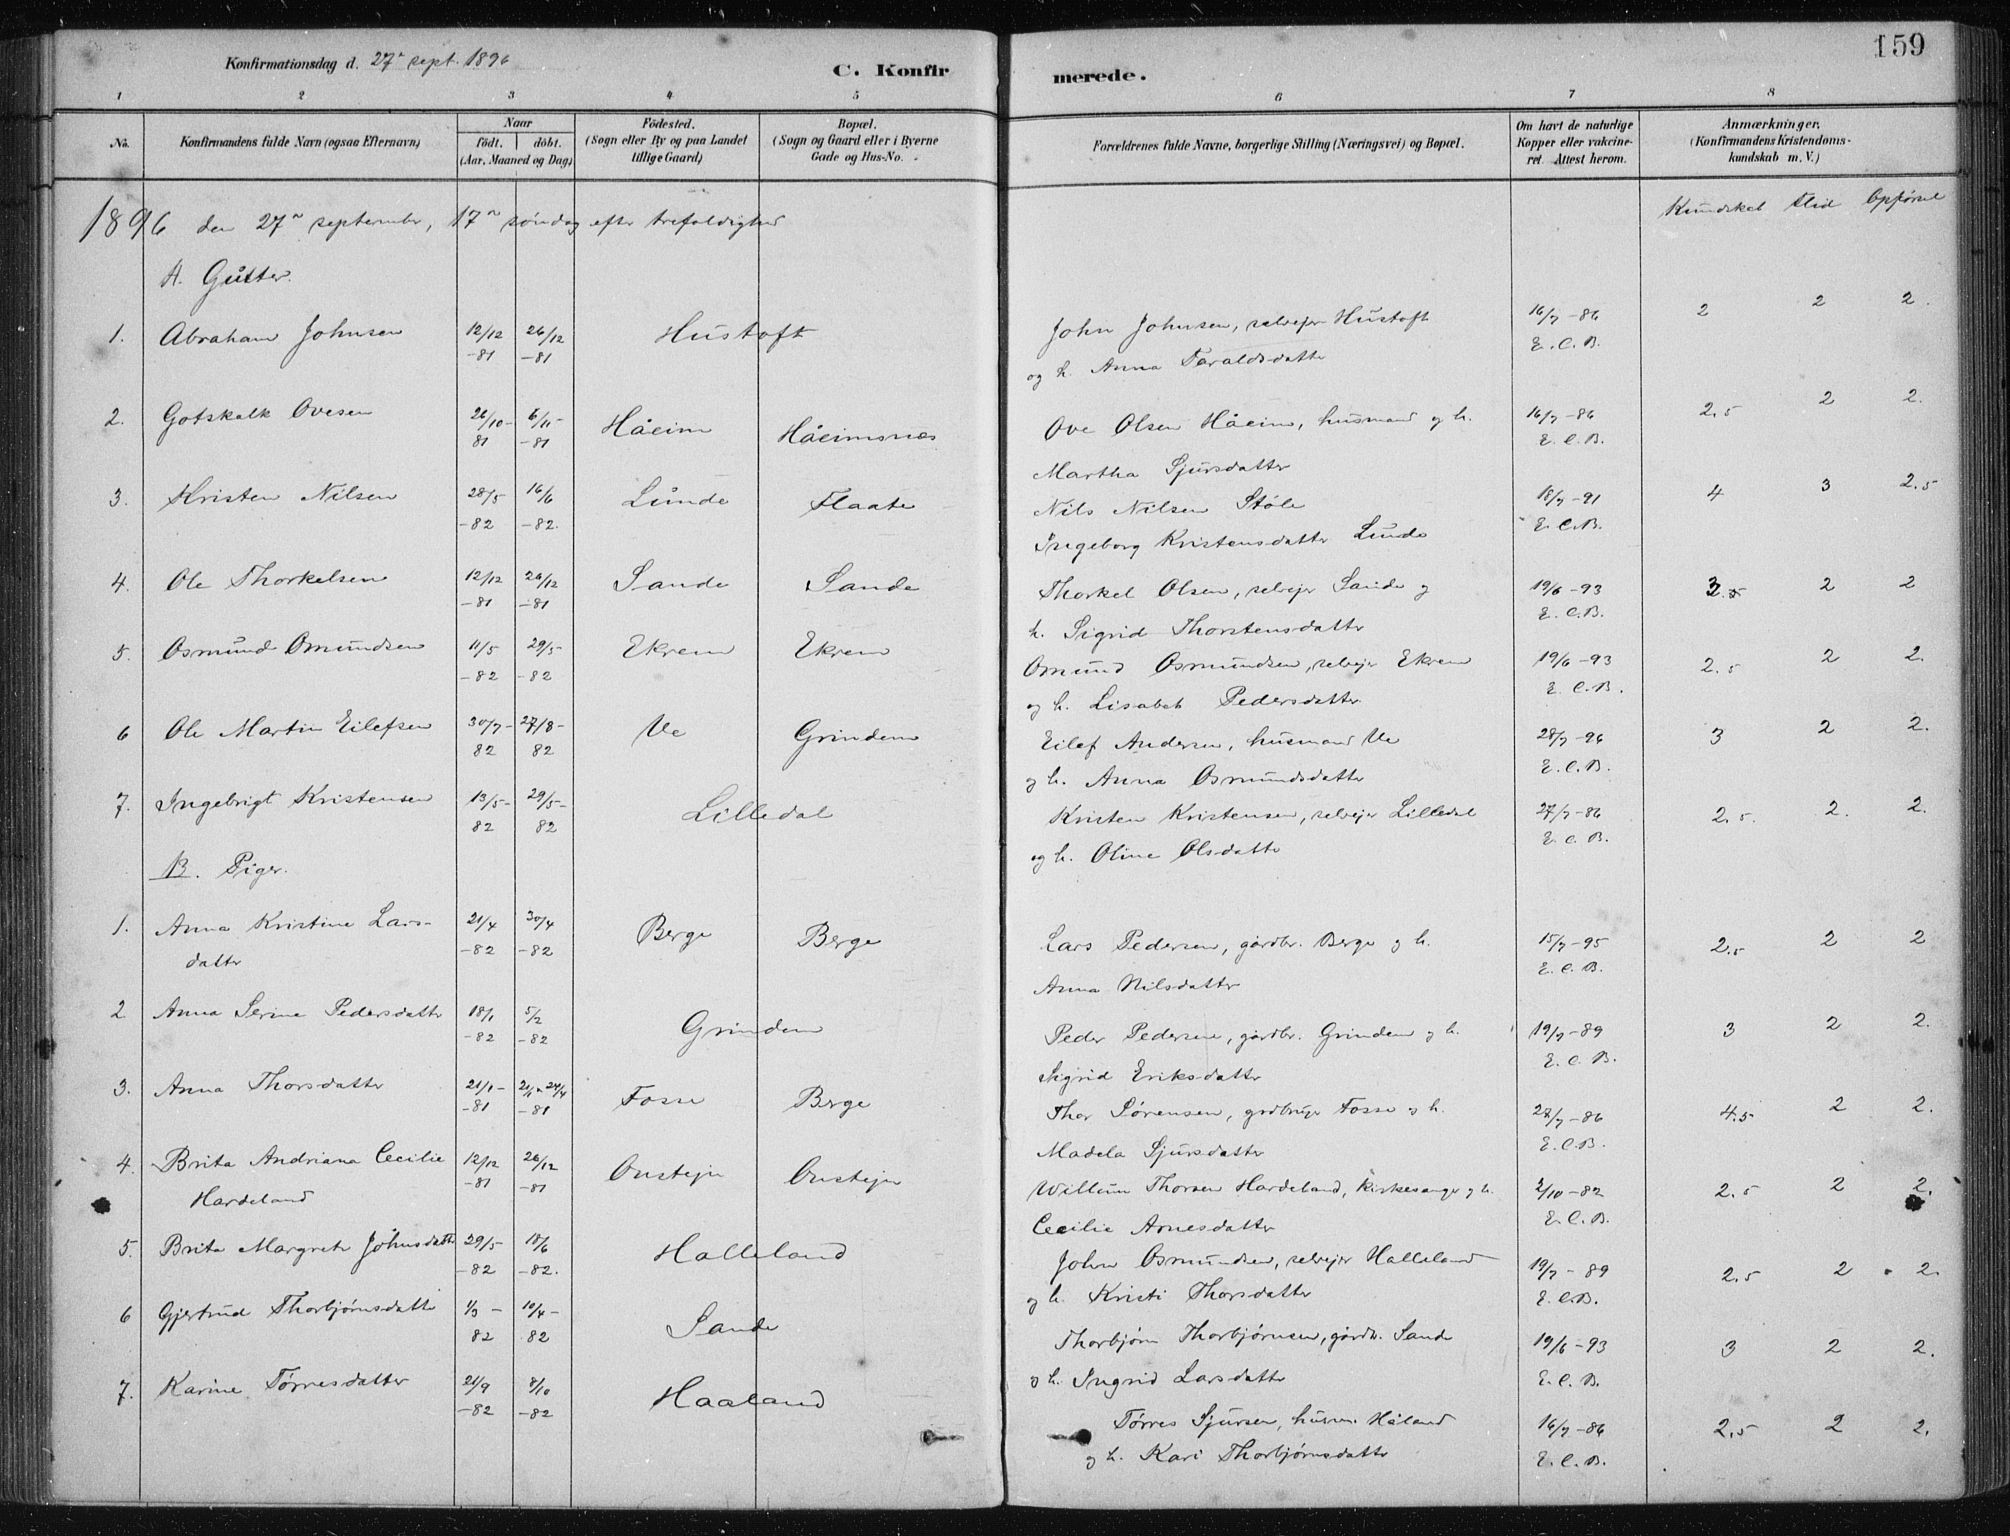 159
Konfirmationsdag d. 27de sept. 1896
C. Konfirmerede.
1 2 3 4 5 6 7 8
No.
Konfirmandens fulde Navn (ogsaa Efternavn)
Naar födt. döbt. (Aar, Maaned og Dag)
Födested. (Sogn eller By og paa Landet tillige Gaard)
Bopæl. (Sogn og Gaard eller i Byerne Gade og Hus-No.
Forældrenes fulde Navne, borgerlige Stilling (Næringsvei) og Bopæl.
Om havt de naturlige Kopper eller vakcineret. Attest herom.
Anmærkninger. (Konfirmandens Kristendomskundskab m. V.)
1896 den 27de september, 17de søndag efter trefoldighed
Kundskab flid Opførsel
A. Gutter.
1. Abraham Johnsen 12/12 -81 26/12 -81 Hustoft John Johnsen, selvejer Hustoft 16/7 -86 2 2 2.
og h. Anna Taraldsdatter E. C. B.
2. Gotskalk Ovesen 26/10- 81 6/11- -81 Håeim Håeimsnæs Ove Olsen Håeim, husmand og h. 16/7 -86 2.5 2 2.
Martha Sjursdatter E. C. B.
3. Kristen Nilsen 28/5 -82 16/6 -82. Lunde Flaate Nils Nilsen Støle 18/7 -91 4 3 2.5
Ingeborg Kristensdatter Lunde E. C. B.
4. Ole Thorkelsen 12/12 -81 26/12 -81 Sande Sande Thorkel Olsen, selvejer Sande og 19/6 -93 2 2
h. Sigrid Thorstensdatter E. C. B.
5. Osmund Omundsen 11/5 -82 29/5- -82 Ekrem Ekrem Omund Osmundsen, selvejer Ekrem 19/6 -93 2.5 2 2.
og h. Lisabet Pedersdatter E. C. B.
6 Ole Martin Eilefsen 30/7- 82 27/8- 82 Ve Grindem Eilef Andersen, husmand Ve 28/7 -96 3 2 2.
og h. Anna Osmundsdatter E. C. B.
7. Ingebrigt Kristensen 13/5- 82 29/5- 82 Lilledal Kristen Kristensen, selvejer Lilledal 27/7 -86 2.5. 2. 2.
og h. Oline Olsdatter E. C. B.
B. Piger.
1. Anna Kristine Larsdatter 21/4 -82 30/4 -82 Berge Berge Lars Pedersen, gårdbr. Berge og h. 15/7 -95 2.5 2 2
Anna Nilsdatter E. C. B.
2 Anna Serine Pedersdatter 18/1 -82 5/2 -82 Grindem Peder Pedersen, gårdbr. Grindem og h. 19/7 -89 3 2 2.
Sigrid Eriksdatter E. C. B.
3. Anna Thorsdatter 21/1- -81 -81 Fosse Berge Thor Sørensen, grdbruger Fosse og h. 27/7 -86 4.5 2 2.
Madela Sjursdatter E. C. B.
4. Brita Andriana Cecilie Hardeland 12/12 -81 26/12 -81 Onstejn Onstejn Willum Thorsen Hardeland, kirkesanger og h. 2/10 -82 2.5 2 2.
Cecilie Arnesdatter E. C. B.
5. Brita Margrete Johnsdatter 29/5 -82 18/6 -82. Halleland John Osmundsen, selvejer Halleland 19/7 - 89 2.5 2 2.
og h. Kristi Thorsdatter E. C. B.
6 Gjertrud Thorbjørnsdatter 1/3 - 82 10/4- 82 Sande Thorbjørn Thorbjørnsen, gårdb. Sande 19/6 -93 3 2 2.
og h. Ingrid Larsdatter E. C. B.
7. Karine Tørresdatter 21/9 -82 8/10 -82 Haaland Tørres Sjursen, husm. Håland 16/7 -86 2.5 2 2.
og h. Kari Thorbjørnsdatter E. C. B.